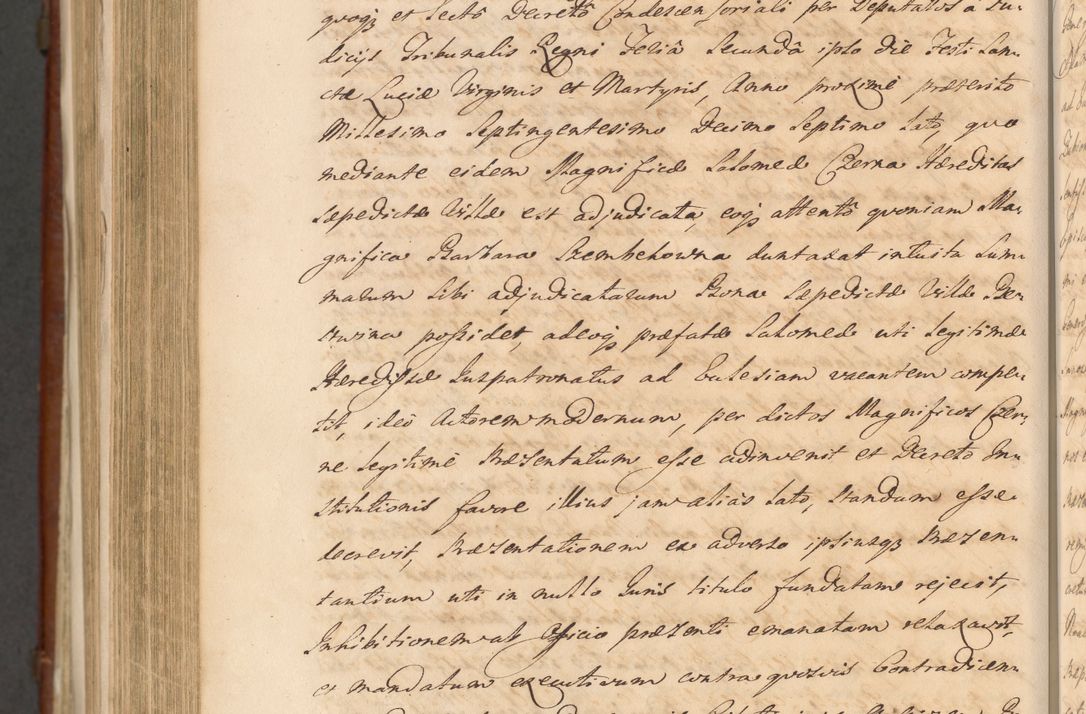 quoqꝫ et lectô Decretô Condescensoriali per Deputatos à Ju„
dicijs Tribunalis Regni Feriâ Secundâ ipso die Festi San„
ctæ Luciæ Virginis et Martyris, Anno proximè præterito
Millesimo Septingentesimo Decimo Septimo lato, quo
mediante eidem Magnificæ Salomeæ Czerna Hæreditas
sæpedictæ Villæ est adjudicata, eoqꝫ attentô quoniam Ma„
gnifica Barbara Szembekowna duntaxat intuitu Sum„
marum sibi adjudicatarum Bona sæpedictæ Villæ
possidet, adeoqꝫ præfatæ Salomeæ uti legitimæ
Hæredissæ Juspatronatus ad Eclesiam vacantem compe„
tit, ideò Actorem modernum, per dictos Magnificos Czer„
ne legitimè Præsentatum esse adinvenit et Decreto In„
stitutionis favore illius jam alias lato, standum esse
decrevit, Præsentationem ex adverso ipsiusqꝫ Præsen„
tantium uti in nullo Juris titulo fundatam rejecit,
Inhibitionem ab Officio præsenti emanatam relaxavit,
et mandatum executivum contra quosvis Contradicen„